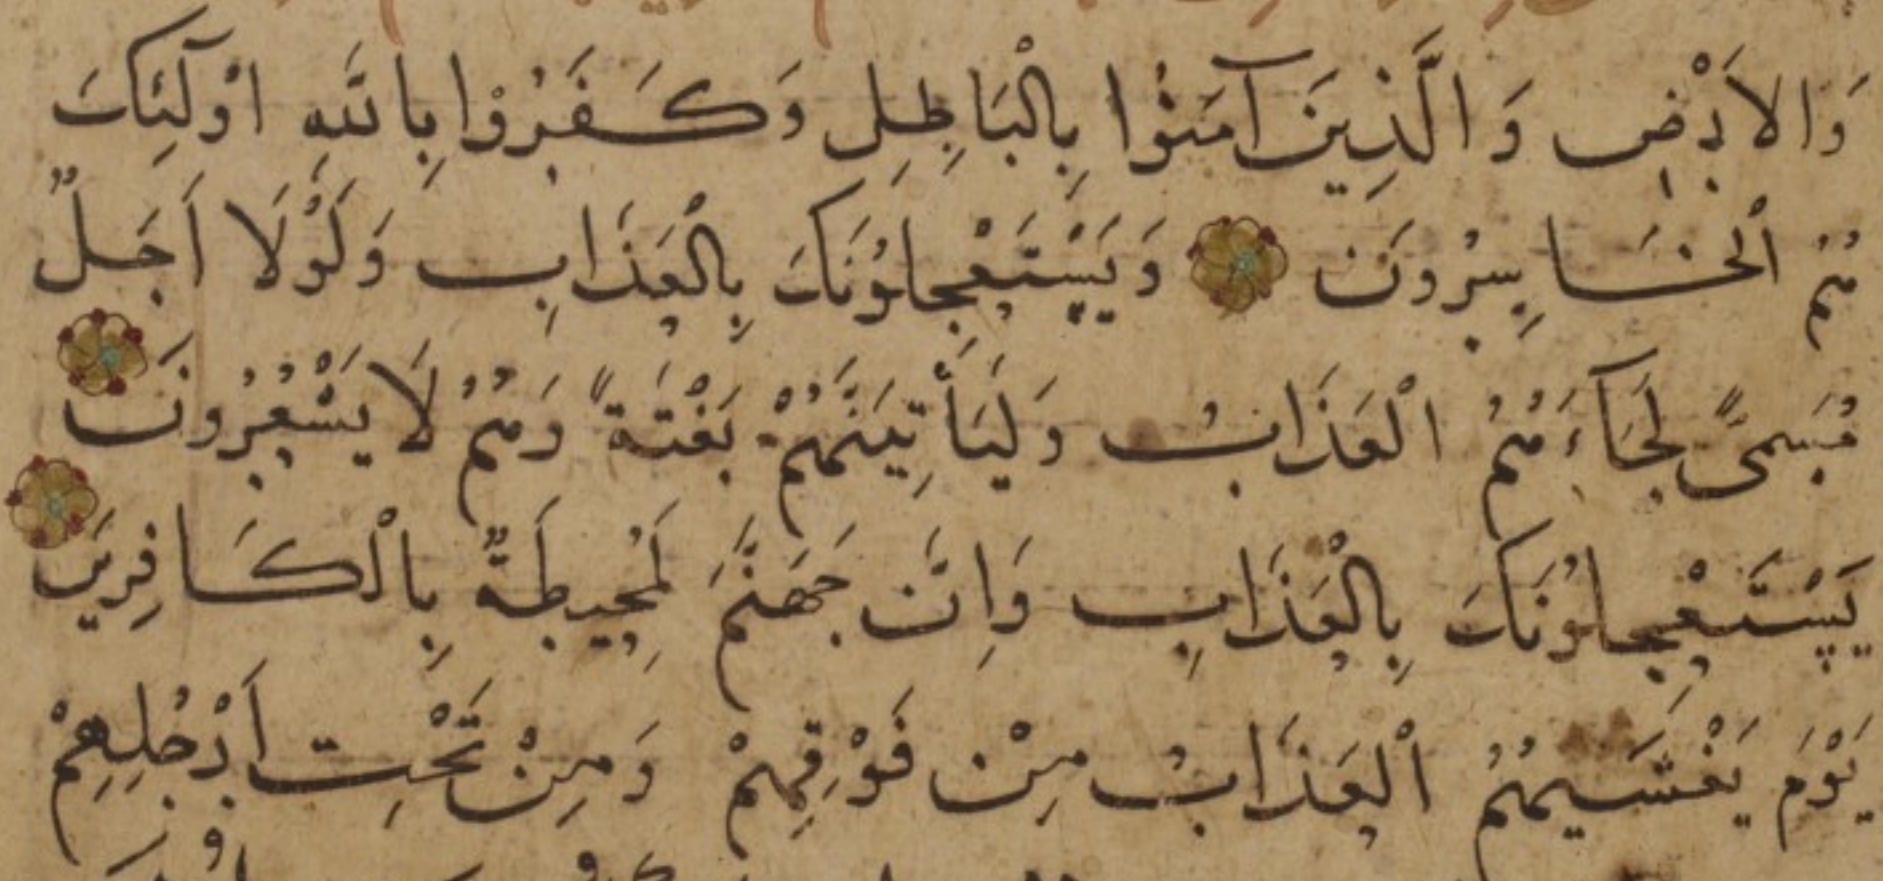 وَالاَرْضِ وَالَّذِينَ آمَنُوا بِالْبَاطِلِ وَكَفَرُوا بِاللّٰهِ اوُلٓئِكَ
هُمُ الْخَاسِرُونَ وَيَسْتَعْجِلُونَكَ بِالْعَذَابِ وَلَوْلَا اَجَلٌ
مُسَمىًّ لَجَآءَهُمُ الْعَذَابُ وَلَيَأْتِيَنَّهُمْ بَغْتَةً وَهُمْ لَا يَشْعُرُونَ
يَسْتَعْجِلُونَكَ بِالْعَذَابِ وَاِنَّ جَهَنَّمَ لَمُحِيطَةٌ بِالْكَافِرِينَ
يَوْمَ يَغْشَيهُمُ الْعَذَابُ مِنْ فَوْقِهِمْ وَمِنْ تَحْتِ اَرْجُلِهِمْ